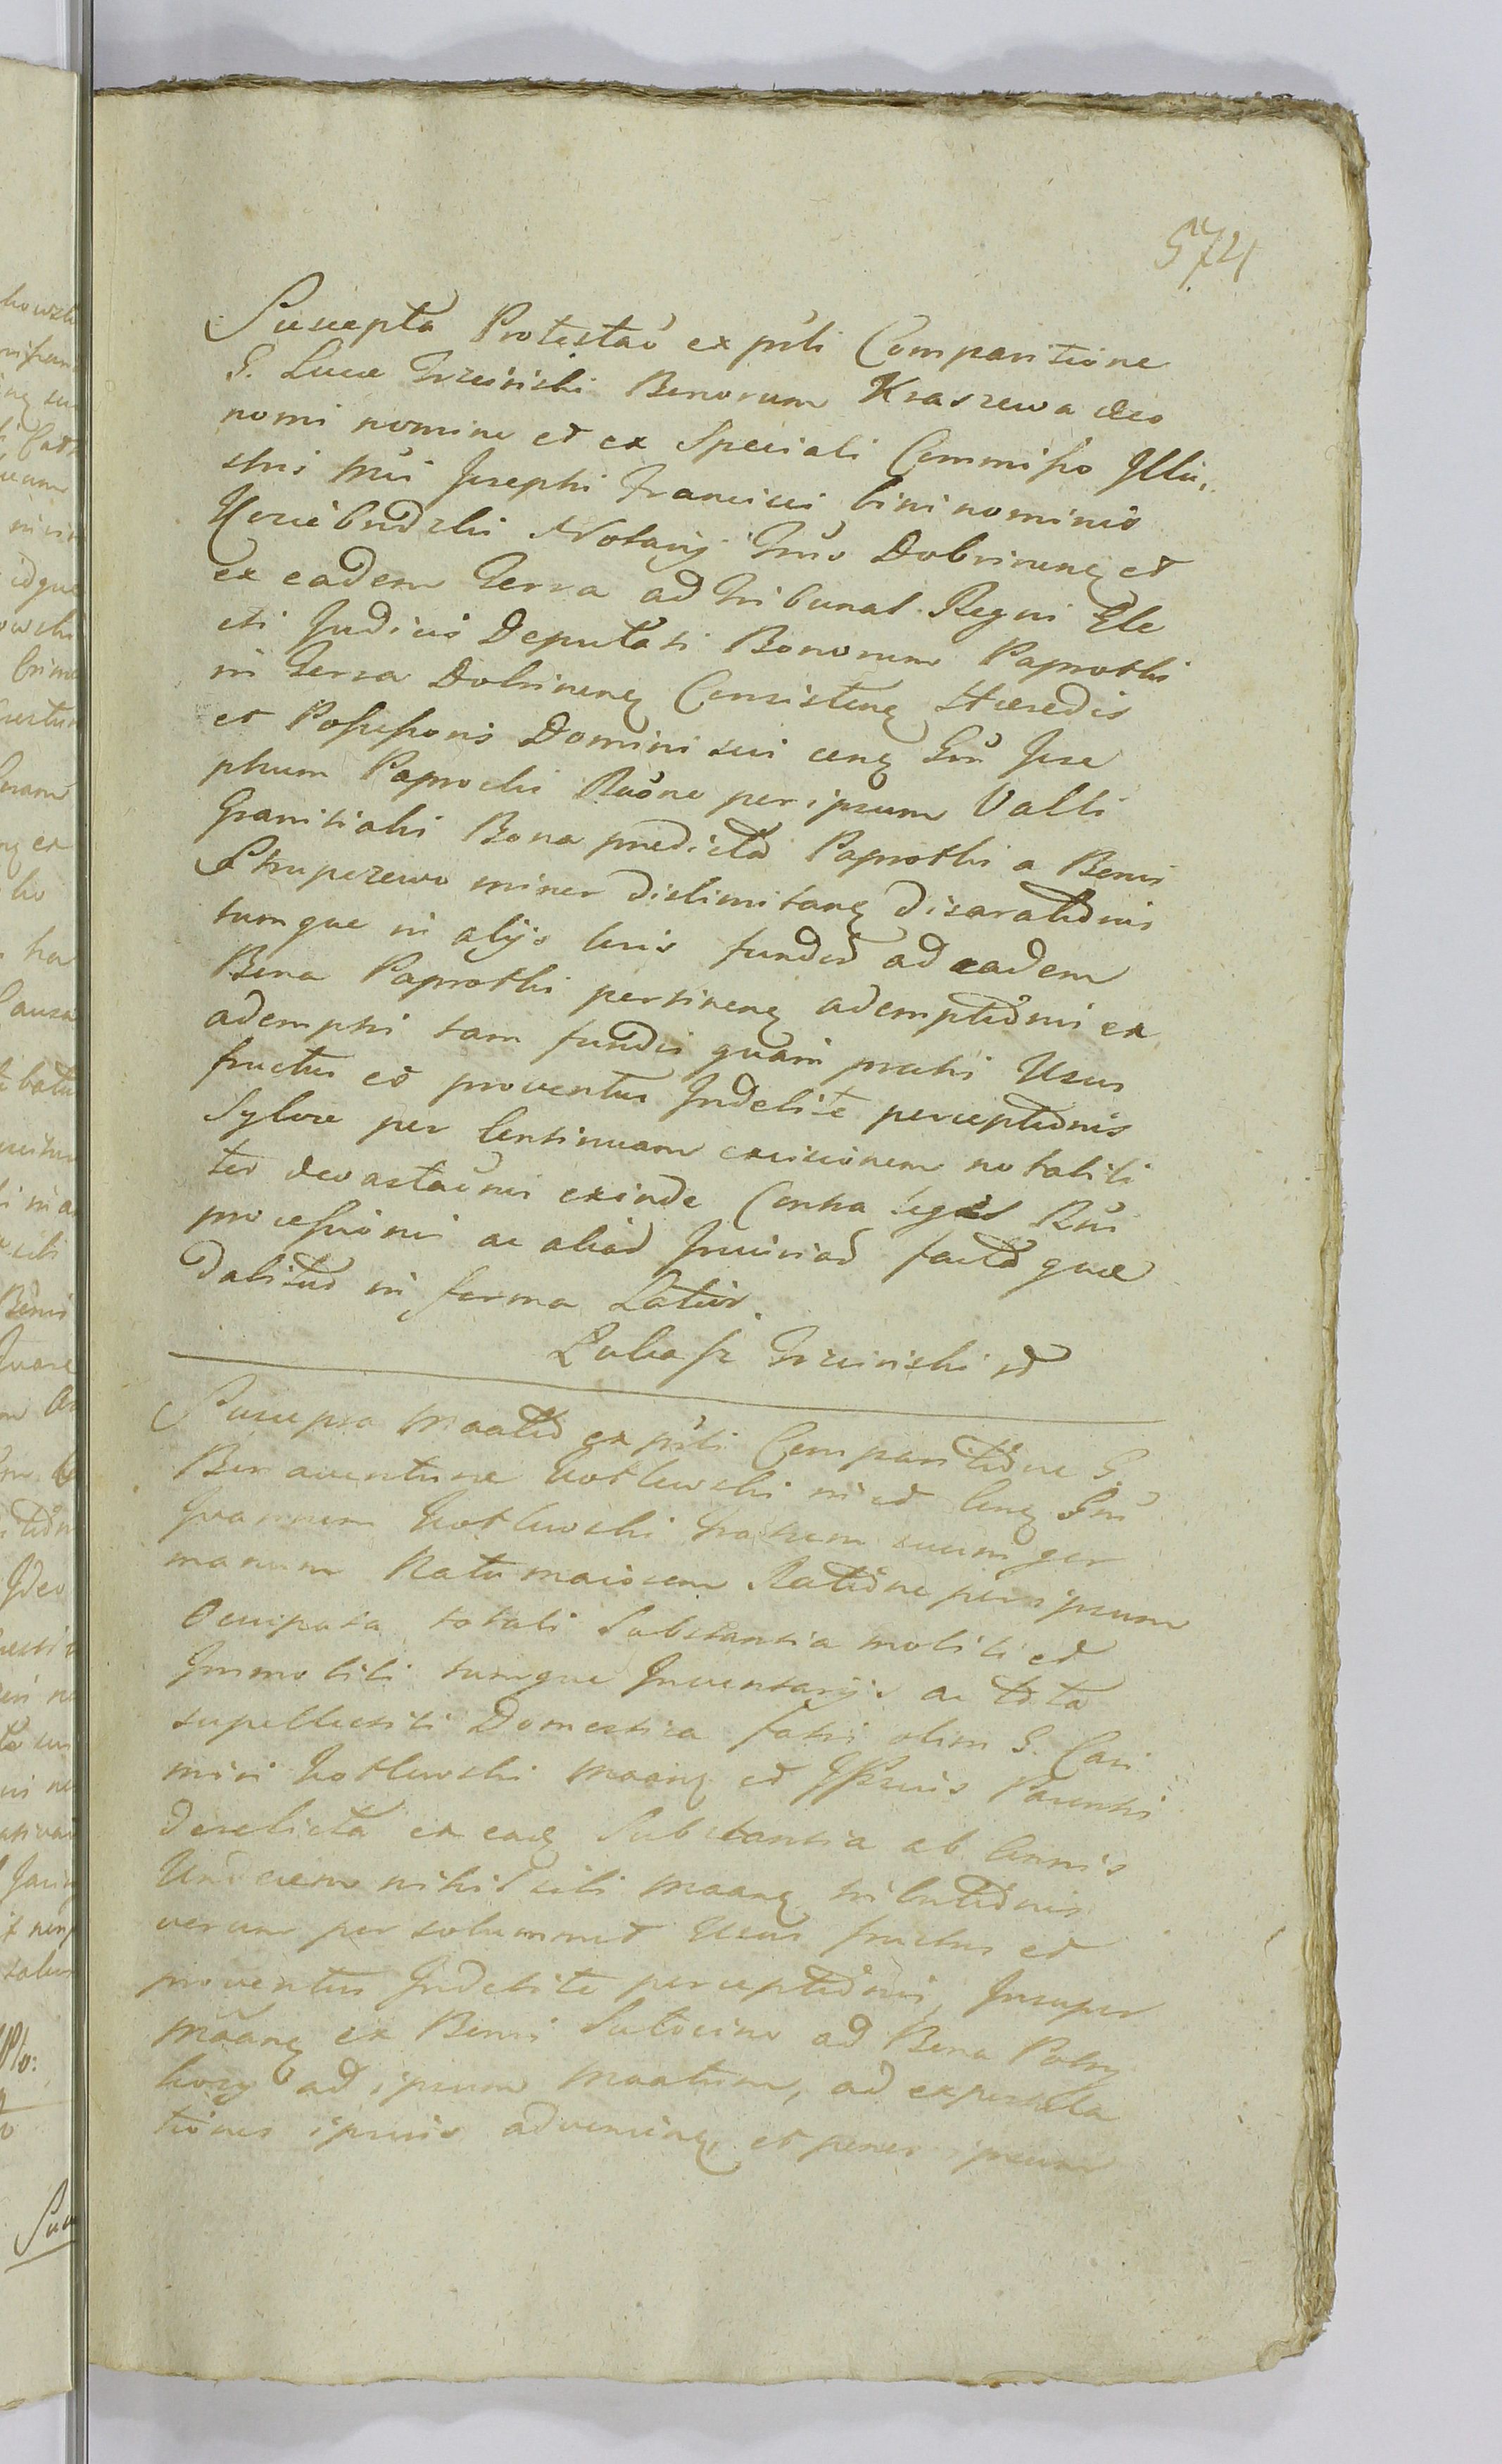 574
Suscepta Protestaõ ex pñti Comparitione
G. Lucæ Trzciński Bonorum Kraszewa Oeco
nomi nomine et ex Speciali Commisso Illu,
stris Mci Josephi Francisci bini nominis
Notarij Trris Dobrinenę et
ex eadem Terra ad Tribunal Regni Ele
cti Judicis Deputati Bonorum Paprotki
in Terra Dobrinenę Consistenę Hæredis
et Possessoris Domini sui conę Gñ Jose
phum Paprocki Raõne per ipsum Valli
Granitialis Bona prædicta Paprotki a Bonis
Skupczewo minor dislimitanę disaratiõnis
tumque in alijs locis fundõ ad eadem
Bona Paprotki pertinenę ademptiõnis ex
adempti tam fundi quam prati Usus
fructus et proventus Indebite perceptiõnis
Sylvæ per Continuam excisionem notabili
ter devastaõnis exinde Contra leges Rni
processionis ac alias Iniurias factas quæ
dabitur in forma Latiõr.
Łukasz Trzciński
Suscepta Maatiõ ex pñti Comparitiõne G.
Bonaventuræ Kotlewski in et Conę Gñ
Joannem Kotlewski fratrem suum ger
manum Natu maiorem Ratiõne per ipsum
Occupata totali Substantia mobili et
Immobili tumque Inventarijs ac tota
supellectili Domestica fatis olim G. Casi
miri Kotlewski Maanę et Ipsius Parentis
derelicta ex eaque Substantia ab Annis
Undecem nihil sibi Maanę tributiõnis
verum per solummet Usus fructus et
proventus Indebite perceptiõnis, Insuper
Maanę ex Bonis Sutocino ad Bona
ad ipsum Maatum, ad expostula
tiones ipsius advenienę, et penes ipsum